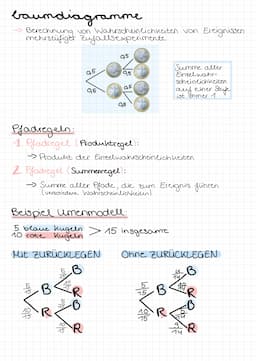 Baumdiagramme
→ Berechnung von Wahrscheinlichkeiten von Ereignissen
mehrstufiger Zufallsexperimente
0,5
0,5
0,5
0,5
Summe aller
Einzelwahr-
scheinlichkeiten
auf einer Stufe
ist immer 1
Pfadregeln:
1. Pfadregel (Produktregel):
→ Produkt der Einzelwahrscheinlichkeiten
2. Pfadregel (Summenregel):
→ Summe aller Pfade, die zum Ereignis führen
Beispiel Urnenmodell
5 blaue Kugeln
10 rote Kugeln > 15 insgesamt
Mit ZURÜCKLEGEN Ohne ZURÜCKLEGEN
B
B
R
R
B
R
B
B
R
R
B
R